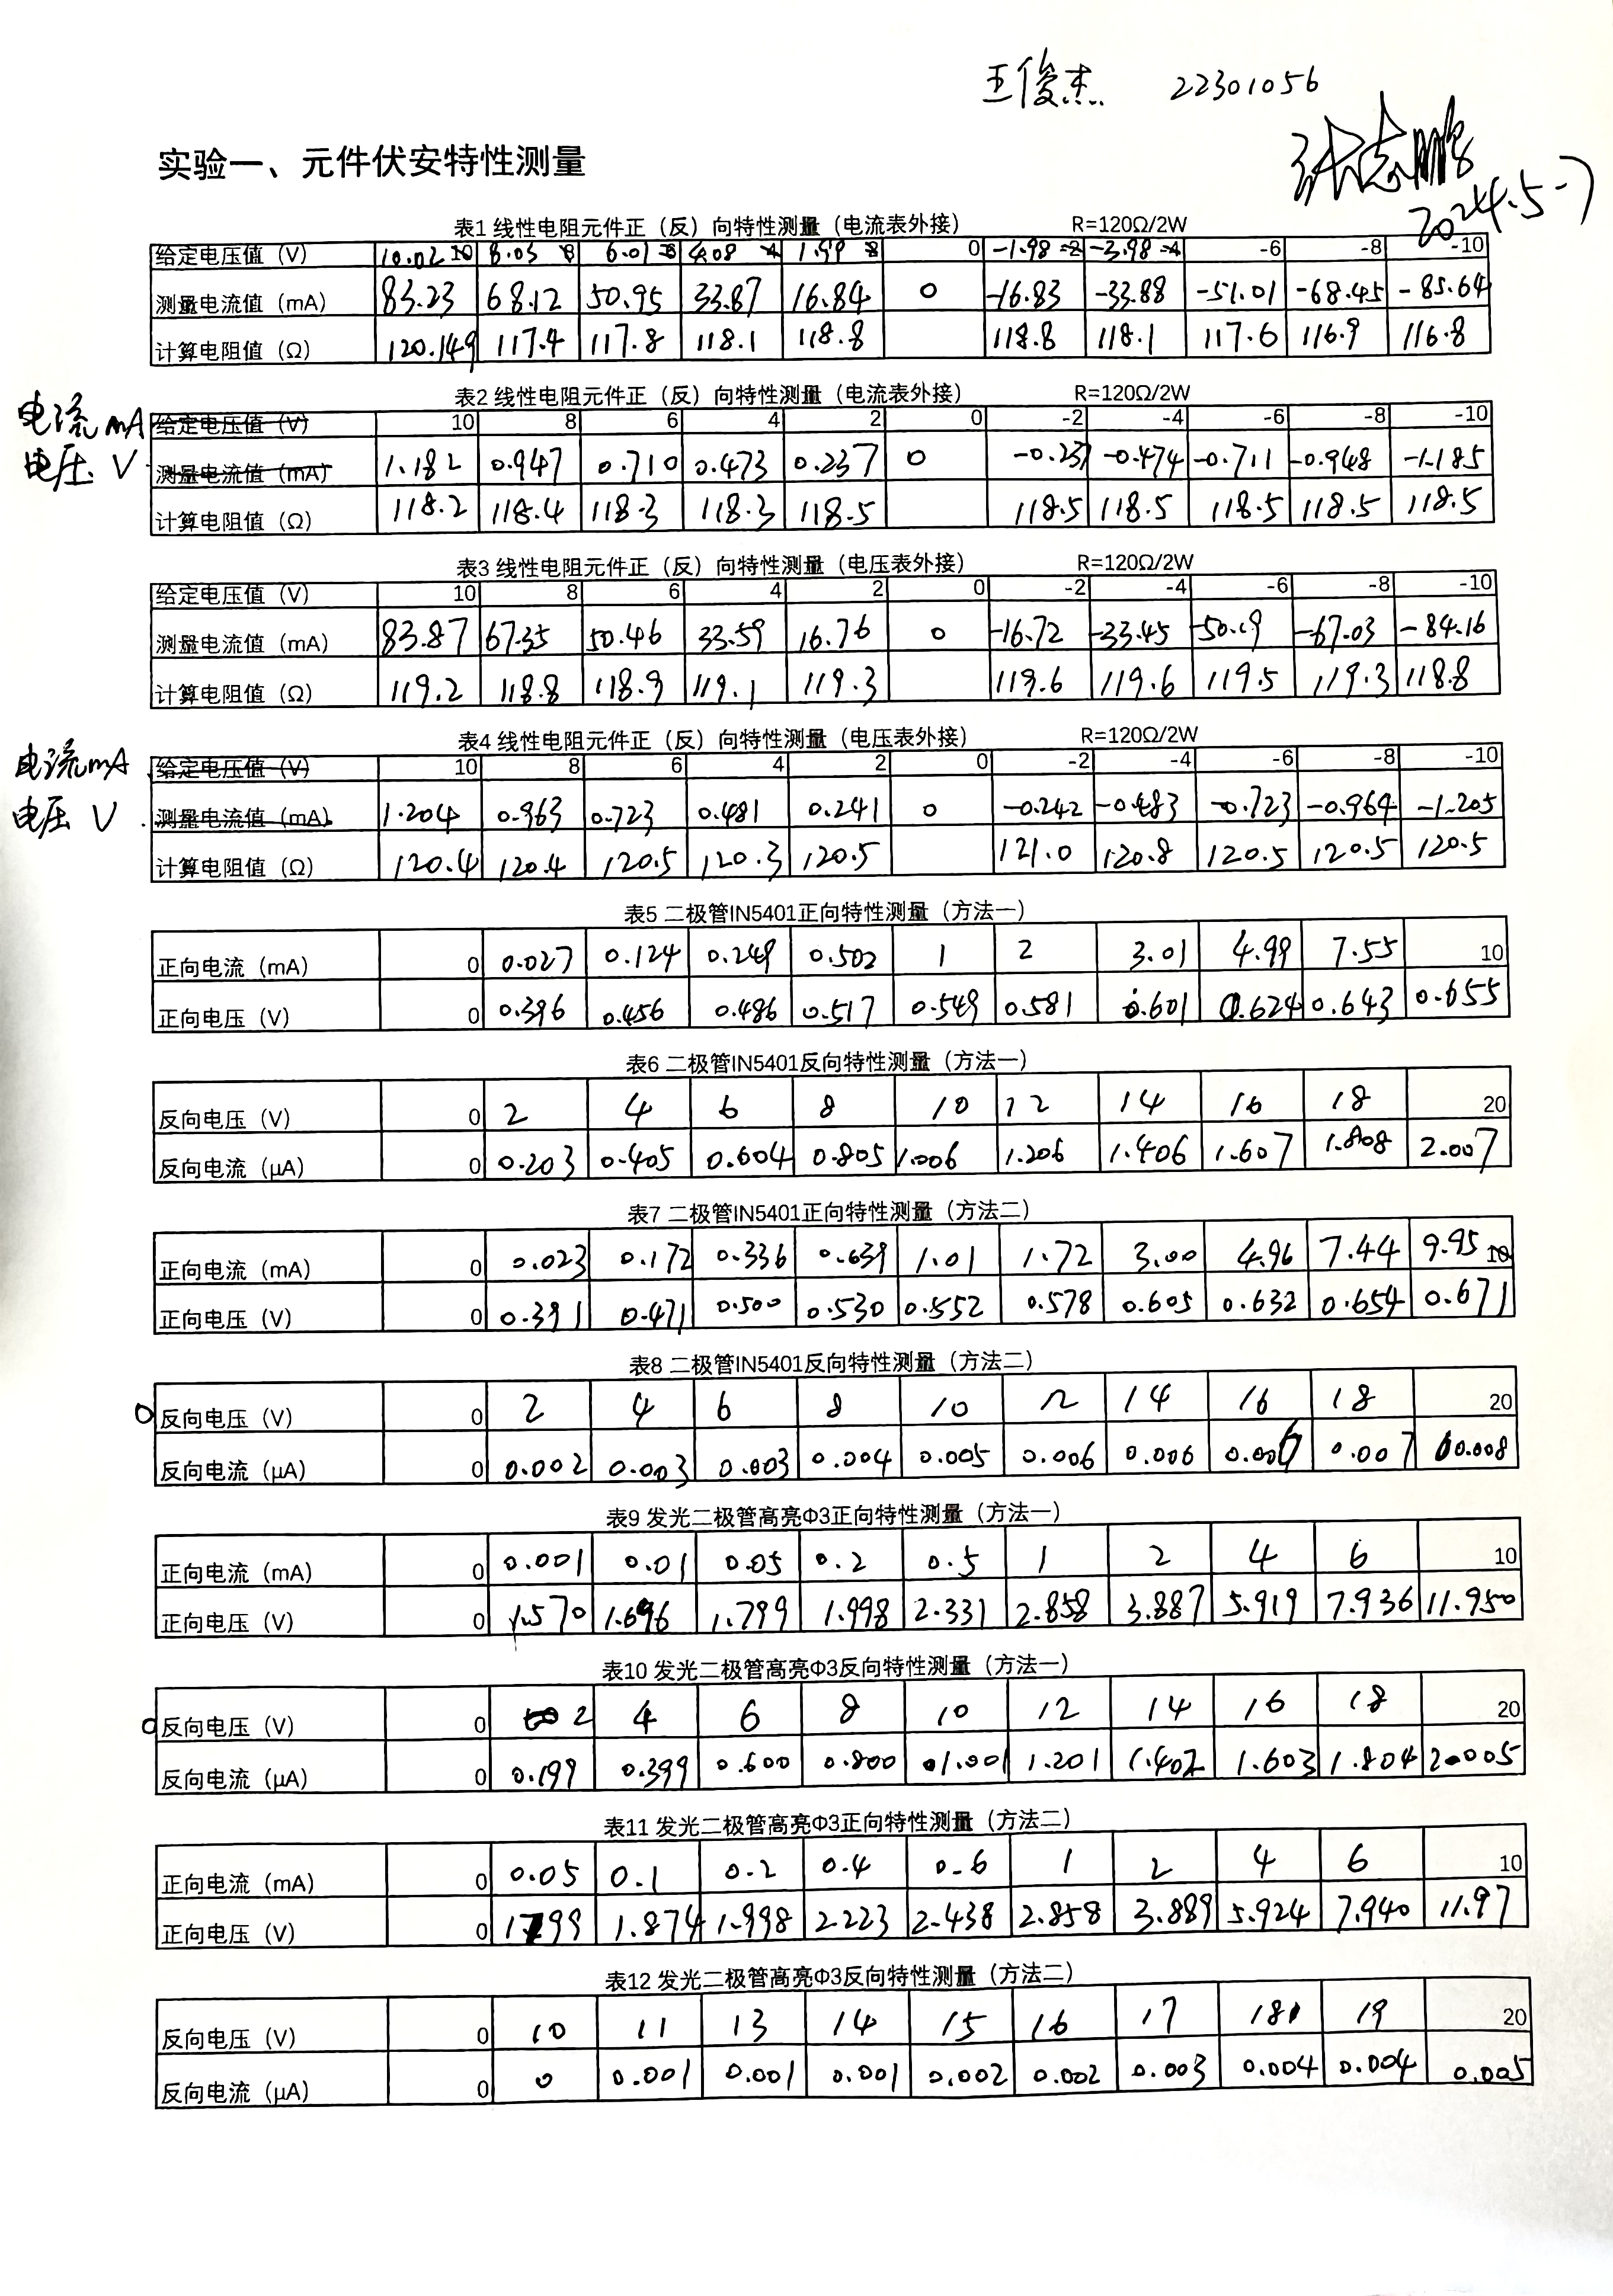 王俊杰 22301056
张志鹏
2024.5-7
实验一、元件伏安特性测量
表1 线性电阻元件正（反）向特性测量（电流表外接） R=120Ω/2W
给定电压值（V） 10.02 10 8.03 8 6.01 6 4.08 4 1.99 2 0 -1.98 -2 -3.98 -4 -6 -8 -10
测量电流值（mA） 83.23 68.12 50.95 33.87 16.84 0 -16.83 -33.88 -51.01 -68.45 -85.64
计算电阻值（Ω） 120.149 117.4 117.8 118.1 118.8 118.8 118.1 117.6 116.9 116.8
表2 线性电阻元件正（反）向特性测量（电流表外接） R=120Ω/2W
电流mA 给定电压值（V） 10 8 6 4 2 0 -2 -4 -6 -8 -10
电压 V 测量电流值（mA） 1.182 0.947 0.710 0.473 0.237 0 -0.237 -0.474 -0.711 -0.948 -1.185
计算电阻值（Ω） 118.2 118.4 118.3 118.3 118.5 118.5 118.5 118.5 118.5 118.5
表3 线性电阻元件正（反）向特性测量（电压表外接） R=120Ω/2W
给定电压值（V） 10 8 6 4 2 0 -2 -4 -6 -8 -10
测量电流值（mA） 83.87 67.35 50.46 33.59 16.76 0 -16.72 -33.45 -50.19 -67.03 -84.16
计算电阻值（Ω） 119.2 118.8 118.9 119.1 119.3 119.6 119.6 119.5 119.3 118.8
表4 线性电阻元件正（反）向特性测量（电压表外接） R=120Ω/2W
电流mA 给定电压值（V） 10 8 6 4 2 0 -2 -4 -6 -8 -10
电压 V 测量电流值（mA） 1.204 0.963 0.723 0.481 0.241 0 -0.242 -0.483 -0.723 -0.964 -1.205
计算电阻值（Ω） 120.4 120.4 120.5 120.3 120.5 121.0 120.8 120.5 120.5 120.5
表5 二极管IN5401正向特性测量（方法一）
正向电流（mA） 0 0.027 0.124 0.249 0.502 1 2 3.01 4.99 7.55 10
正向电压（V） 0 0.396 0.456 0.486 0.517 0.549 0.581 0.601 0.624 0.643 0.655
表6 二极管IN5401反向特性测量（方法一）
反向电压（V） 0 2 4 6 8 10 12 14 16 18 20
反向电流（μA） 0 0.203 0.405 0.604 0.805 1.006 1.206 1.406 1.607 1.808 2.007
表7 二极管IN5401正向特性测量（方法二）
正向电流（mA） 0 0.023 0.172 0.336 0.639 1.01 1.72 3.00 4.96 7.44 9.95 10
正向电压（V） 0 0.391 0.471 0.500 0.530 0.552 0.578 0.605 0.632 0.654 0.671
表8 二极管IN5401反向特性测量（方法二）
反向电压（V） 0 2 4 6 8 10 12 14 16 18 20
反向电流（μA） 0 0.002 0.003 0.003 0.004 0.005 0.006 0.006 0.007 0.008
表9 发光二极管高亮Φ3正向特性测量（方法一）
正向电流（mA） 0 0.001 0.01 0.05 0.2 0.5 1 2 4 6 10
正向电压（V） 0 1.570 1.696 1.799 1.998 2.331 2.858 3.887 5.919 7.936 11.950
表10 发光二极管高亮Φ3反向特性测量（方法一）
反向电压（V） 0 2 4 6 8 10 12 14 16 18 20
反向电流（μA） 0 0.199 0.399 0.600 0.800 1.001 1.201 1.402 1.603 1.804 2.005
表11 发光二极管高亮Φ3正向特性测量（方法二）
正向电流（mA） 0 0.05 0.1 0.2 0.4 0.6 1 2 4 6 10
正向电压（V） 0 1.799 1.874 1.998 2.223 2.438 2.858 3.889 5.924 7.940 11.97
表12 发光二极管高亮Φ3反向特性测量（方法二）
反向电压（V） 0 10 11 13 14 15 16 17 18 19 20
反向电流（μA） 0 0 0.001 0.001 0.001 0.002 0.002 0.003 0.004 0.004 0.005